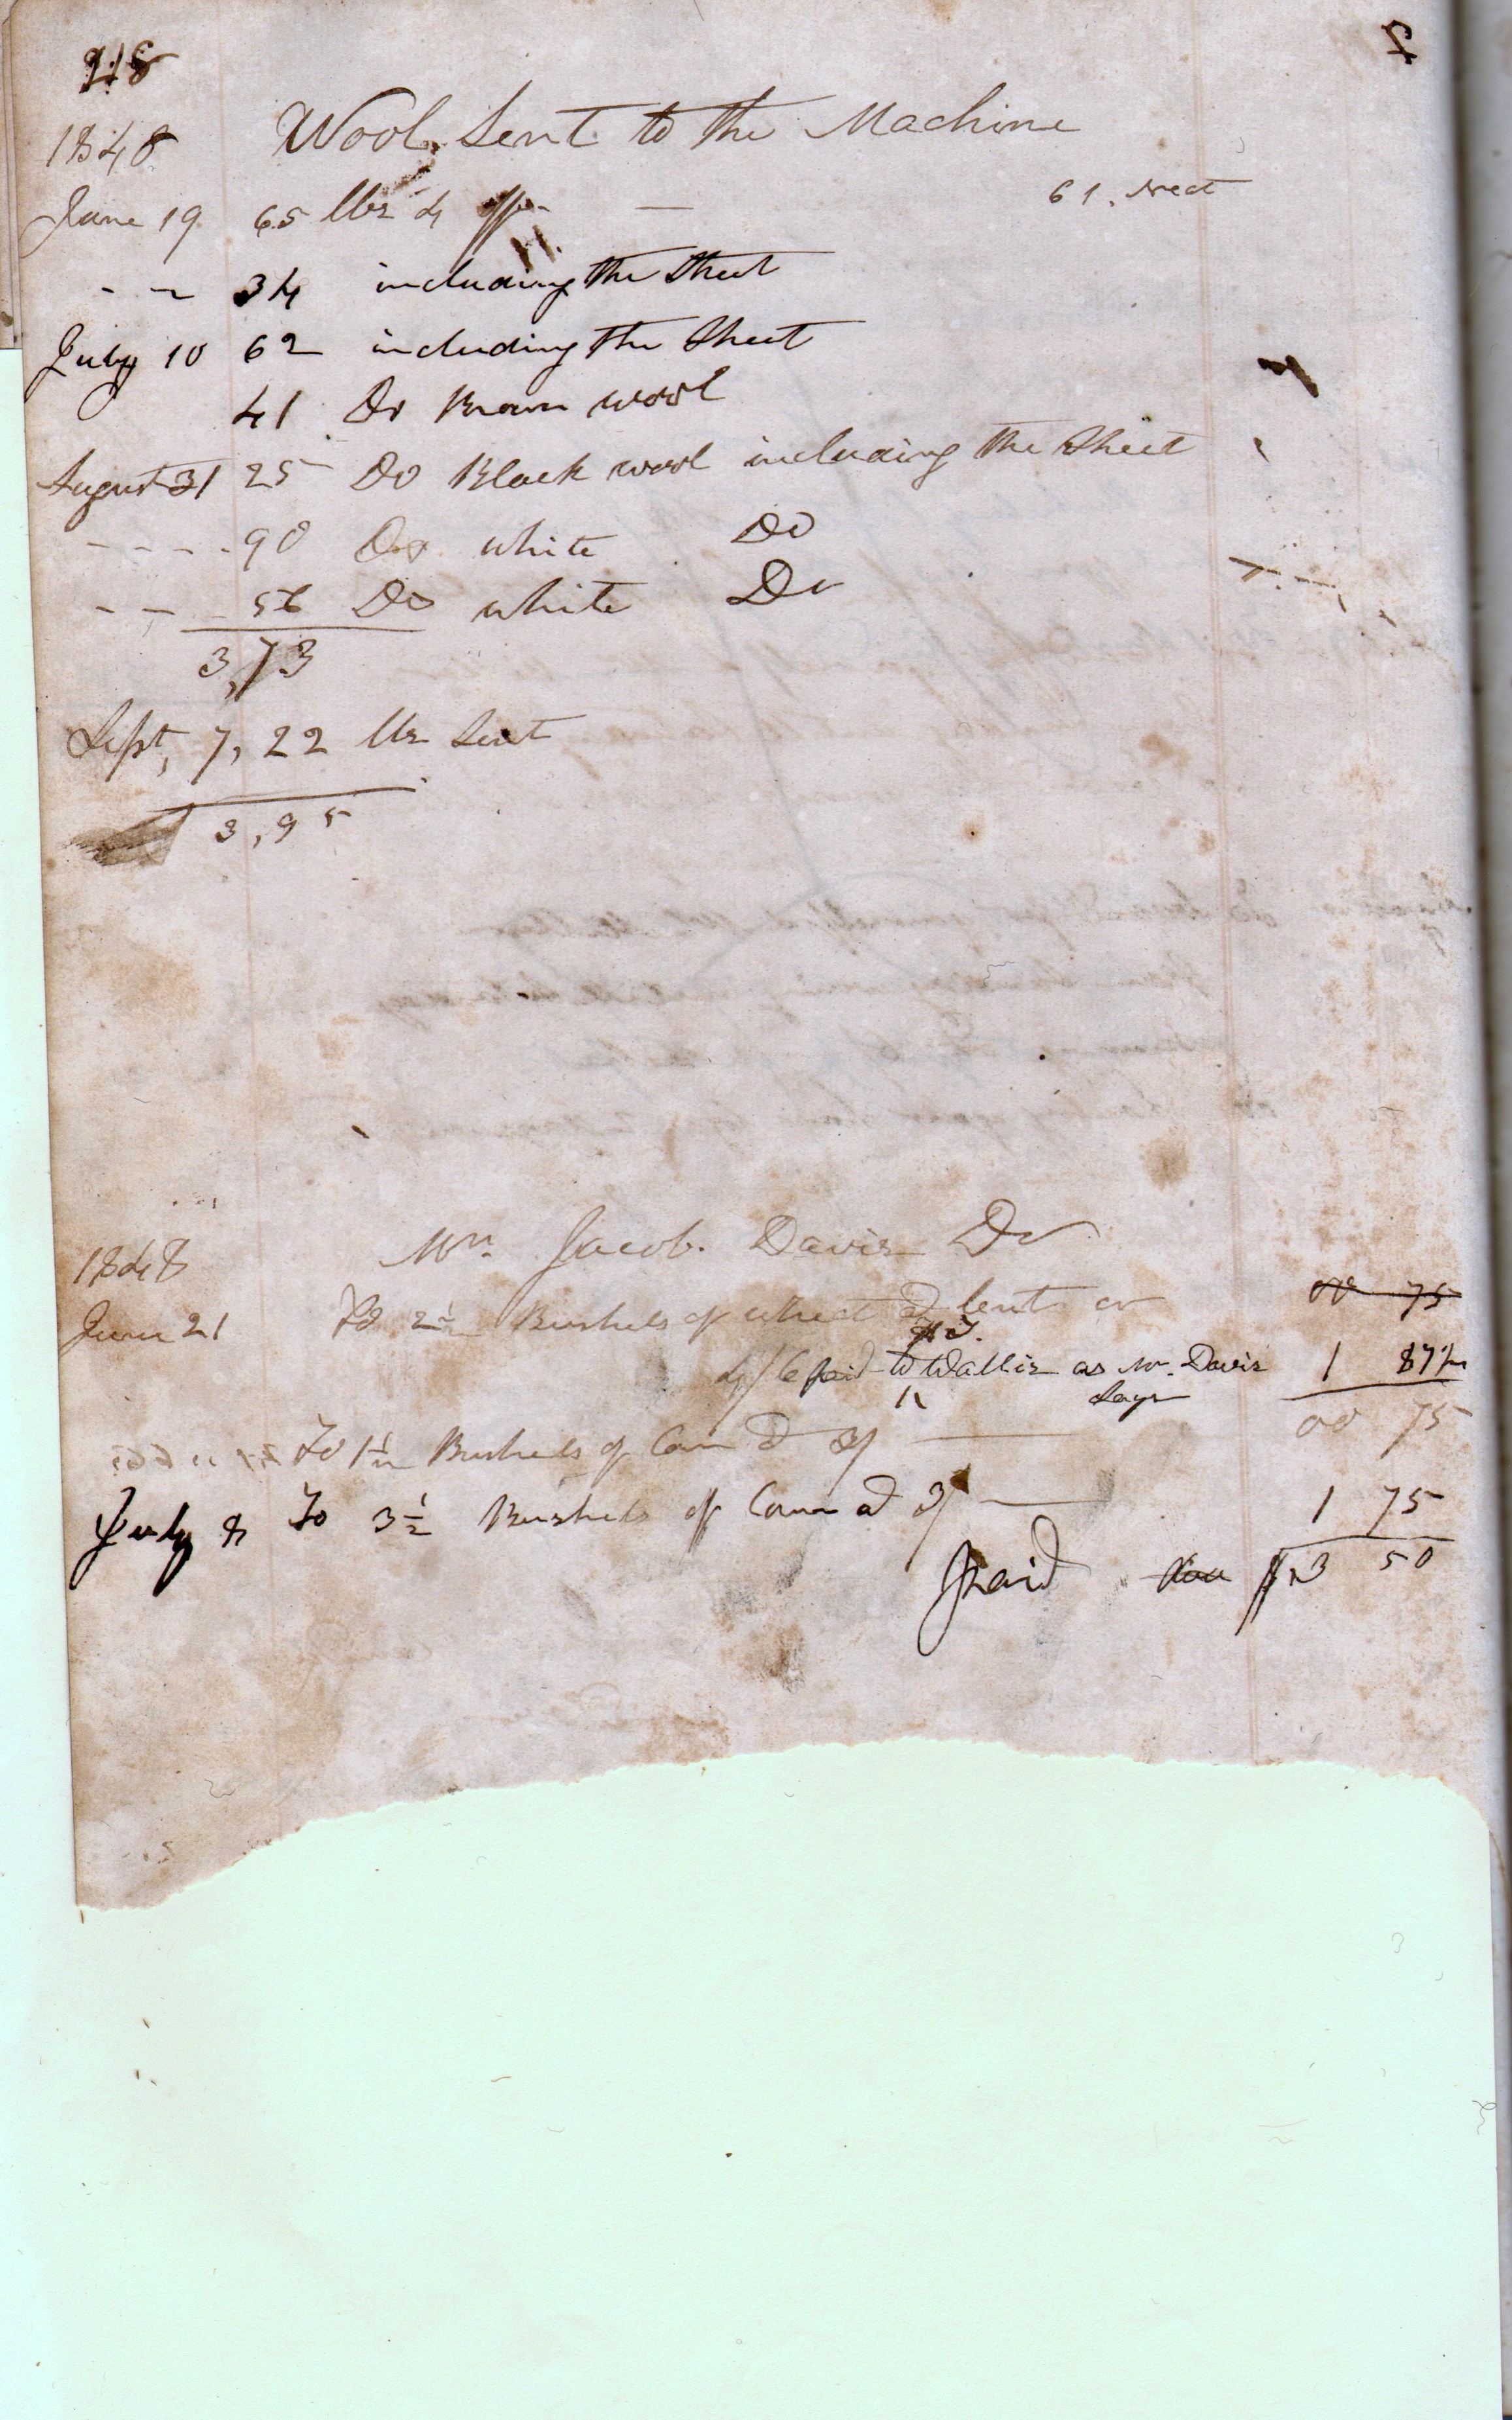 218
1848 Wool Sent to the Machine
June 19 65 lbs 61. Neet
- - 34 including the Sheet
July 10 62 including the Sheet
41 Do Brown wool
August 31 25 Do Black wool including the Sheet
- - - - 90 Do white Do
- - 56 Do white Do
3,73
Sept, 7, 22 lbs Sent
3,95
Mr. Jacob. Davis Dr
1848
June 21 To 2 1/2 Bushels of wheat lent or 00 75
4/6 paid to Wallis as Mr. Davis 1 87 1/2
says
To 1 1/2 Bushels of Corn @ 3/ 00 75
July 8 To 3 1/2 Bushels of Corn @ 3/ 1 75
paid $,3 50